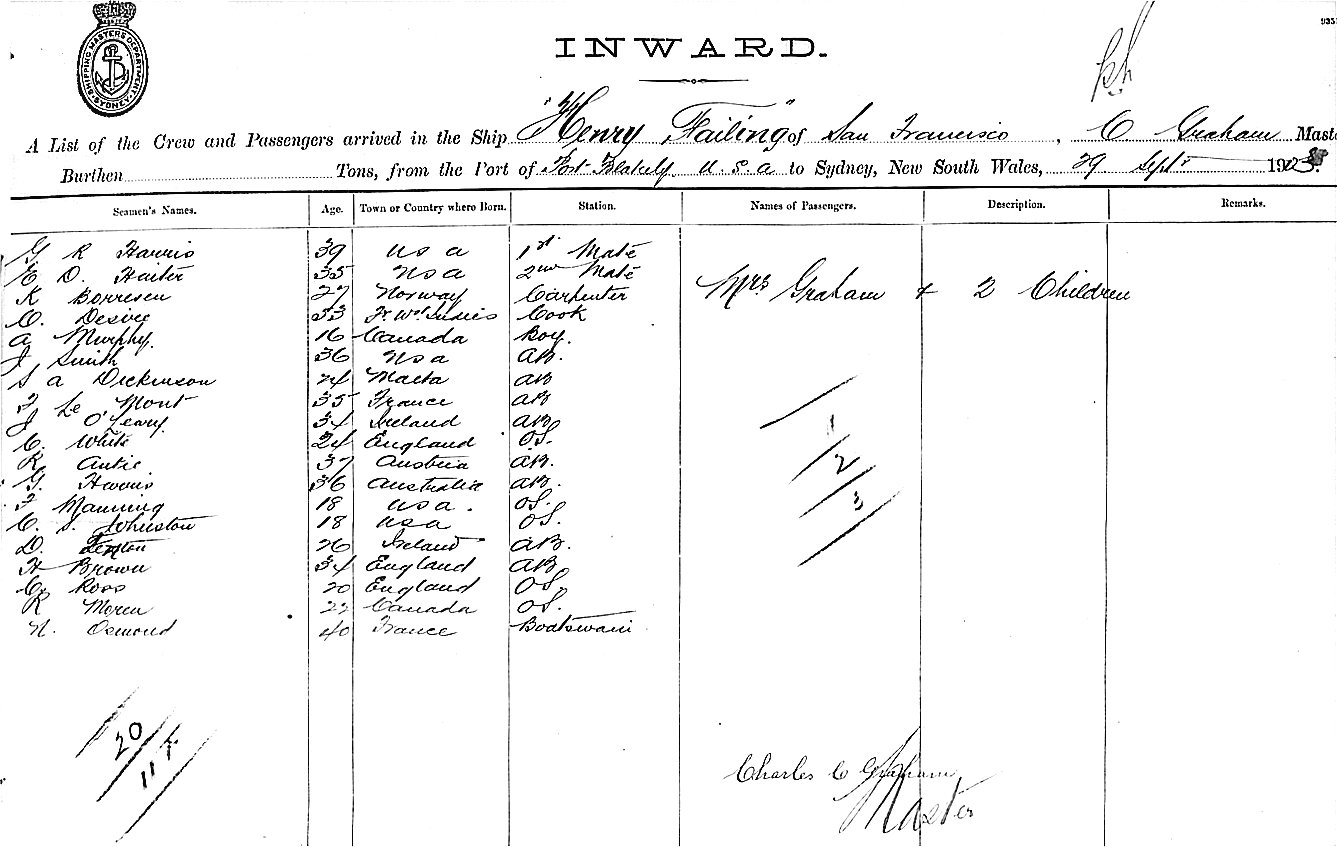 SHIPPING MASTERS DEPARTMENT. SYDNEY
935
INWARD.
A List of the Crew and Passengers arrived in the Ship "Henry Failing" of San Francisco, C Graham Maste
Burthen Tons, from the Port of Port Blakely U.S.A to Sydney, New South Wales, 29 Sept 190
Seamen's Names. Age. Town or Country where Born. Station. Names of Passengers. Description. Remarks.
G R Harris 39 U S A 1st Mate
E D. Haiter 35 U S A 2nd Mate
Mrs Graham + 2 Children
K Borresen 27 Norway Carpenter
C. Desire 33 Fr. Wst Indies Cook
A Murphy. 16 Canada Boy.
J Smith 36 U S A AB.
S A Dickinson 24 Malta AB
F Le Mont 35 France AB
J O'Leary. 34 Ireland AB
C. White 24 England OS.
R Antic 37 Austria AB.
G. 36 Australia AB.
F Manning 18 U S A. OS.
C. S. Johnston 18 U S A OS.
D. Fenton 26 Ireland AB.
H Brown 34 England AB
C. Roos 20 England OS.
R Meren 22 Canada OS.
N. Osmond 40 France Boatswain
1
2
3
20
11
Charles C Graham
Master